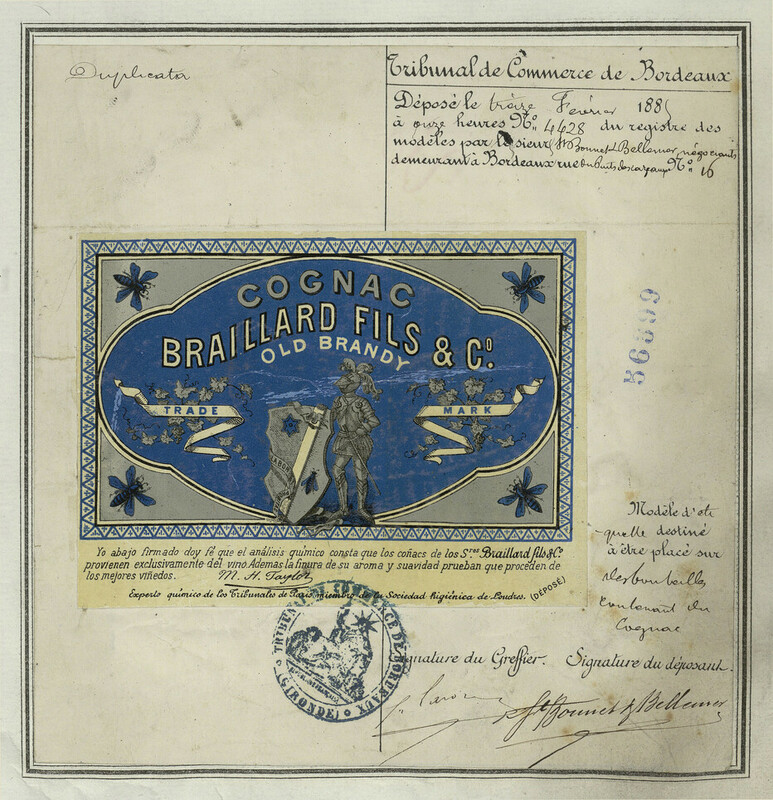 Duplicata
Tribunal de Commerce de Bordeaux
Déposé le treize Février 188
à onze heures Nº 4428 du registre des
modèles par le sieur St Bonnet & Bellemer, négociants
demeurant à Bordeaux rue du Puits descazeaux Nº 16
COGNAC
BRAILLARD FILS & Cº.
OLD BRANDY
TRADE
MARK
56899
Yo abajo firmado doy fé que el análisis químico consta que los coñacs de los Sres Braillard fils & Cº
provienen exclusivamente del vino. Ademas la finura de su aroma y suavidad prueban que proceden de
los mejores viñedos.
M. H. Taylor
Experto químico de los Tribunales de Paris miembro de la Sociedad higiénica de Londres. (DÉPOSÉ)
Modèle d'éti
quette destiné
à être placé sur
des bouteilles
contenant du
Cognac
TRIBUNAL DE COMMERCE DE BORDEAUX
(GIRONDE)
Signature du Greffier. Signature du déposant.
St Bonnet & Bellemer